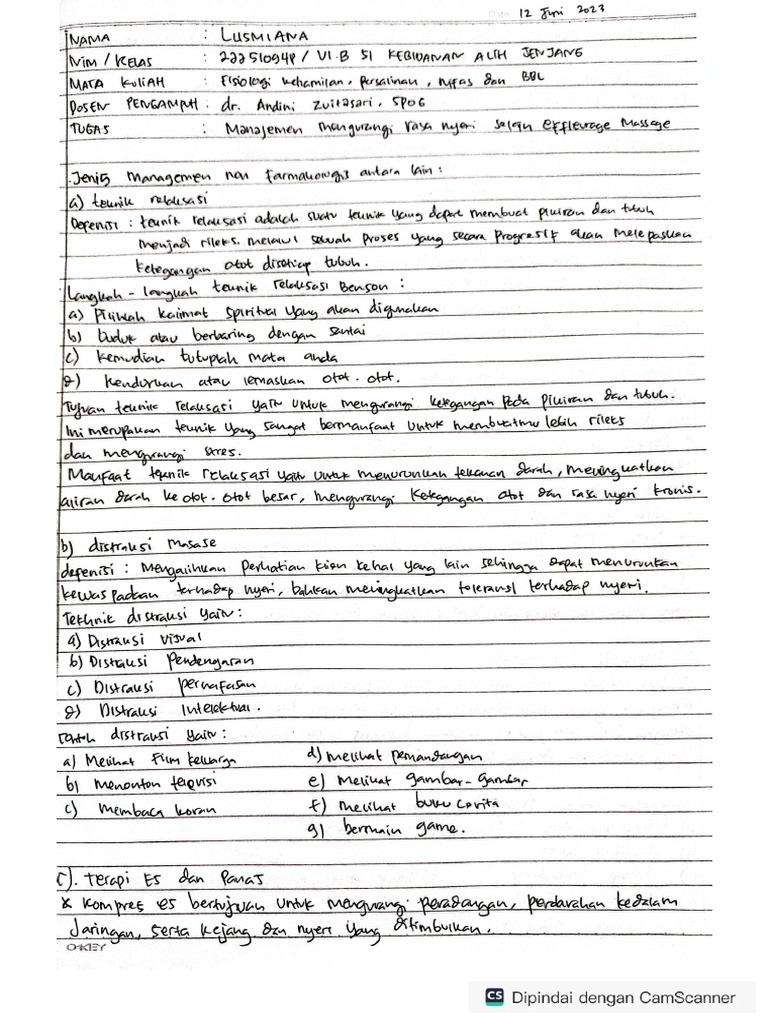 12 Juni 2023
NAMA : LUSMIANA
NIM / KELAS : 22251094P / VI.B S1 KEBIDANAN ALIH JENJANG
MATA KULIAH : Fisiologi kehamilan, persalinan, nifas dan BBL
DOSEN PENGAMPUH : dr. Andini Zuitasari, SPOG
TUGAS : Manajemen mengurangi rasa nyeri selain effleurage Massage
Jenis managemen non farmakologis antara lain :
a) teknik relaksasi
Defenisi : teknik relaksasi adalah suatu teknik yang dapat membuat pikiran dan tubuh
menjadi rileks. melalui sebuah proses yang secara progresif akan melepaskan
ketegangan otot disetiap tubuh.
Langkah - langkah teknik relaksasi Benson :
a) Pilihlah kalimat spiritual yang akan digunakan
b) Duduk atau berbaring dengan santai
c) Kemudian tutuplah mata anda
d) Kendurkan atau lemaskan otot - otot.
Tujuan teknik relaksasi yaitu untuk mengurangi ketegangan pada pikiran dan tubuh.
Ini merupakan teknik yang sangat bermanfaat untuk membuatmu lebih rileks
dan mengurangi stres.
Manfaat teknik relaksasi yaitu untuk menurunkan tekanan darah, meningkatkan
aliran darah ke otot - otot besar, mengurangi ketegangan otot dan rasa nyeri kronis.
b) distraksi masase
defenisi : Mengalihkan perhatian klien kehal yang lain sehingga dapat menurunkan
kewaspadaan terhadap nyeri, bahkan meningkatkan toleransi terhadap nyeri.
Tekhnik distraksi yaitu :
a) Distraksi visual
b) Distraksi Pendengaran
c) Distraksi pernafasan
d) Distraksi Intelektual.
Contoh distraksi yaitu :
a) Melihat Film keluarga
b) menonton televisi
c) membaca koran
d) melihat pemandangan
e) Melihat gambar - gambar
f) melihat buku cerita
g) bermain game.
C). terapi ES dan Panas
* Kompres es bertujuan untuk mengurangi peradangan, perdarahan kedalam
Jaringan, serta kejang dan nyeri yang ditimbulkan.
OKEY
CS Dipindai dengan CamScanner